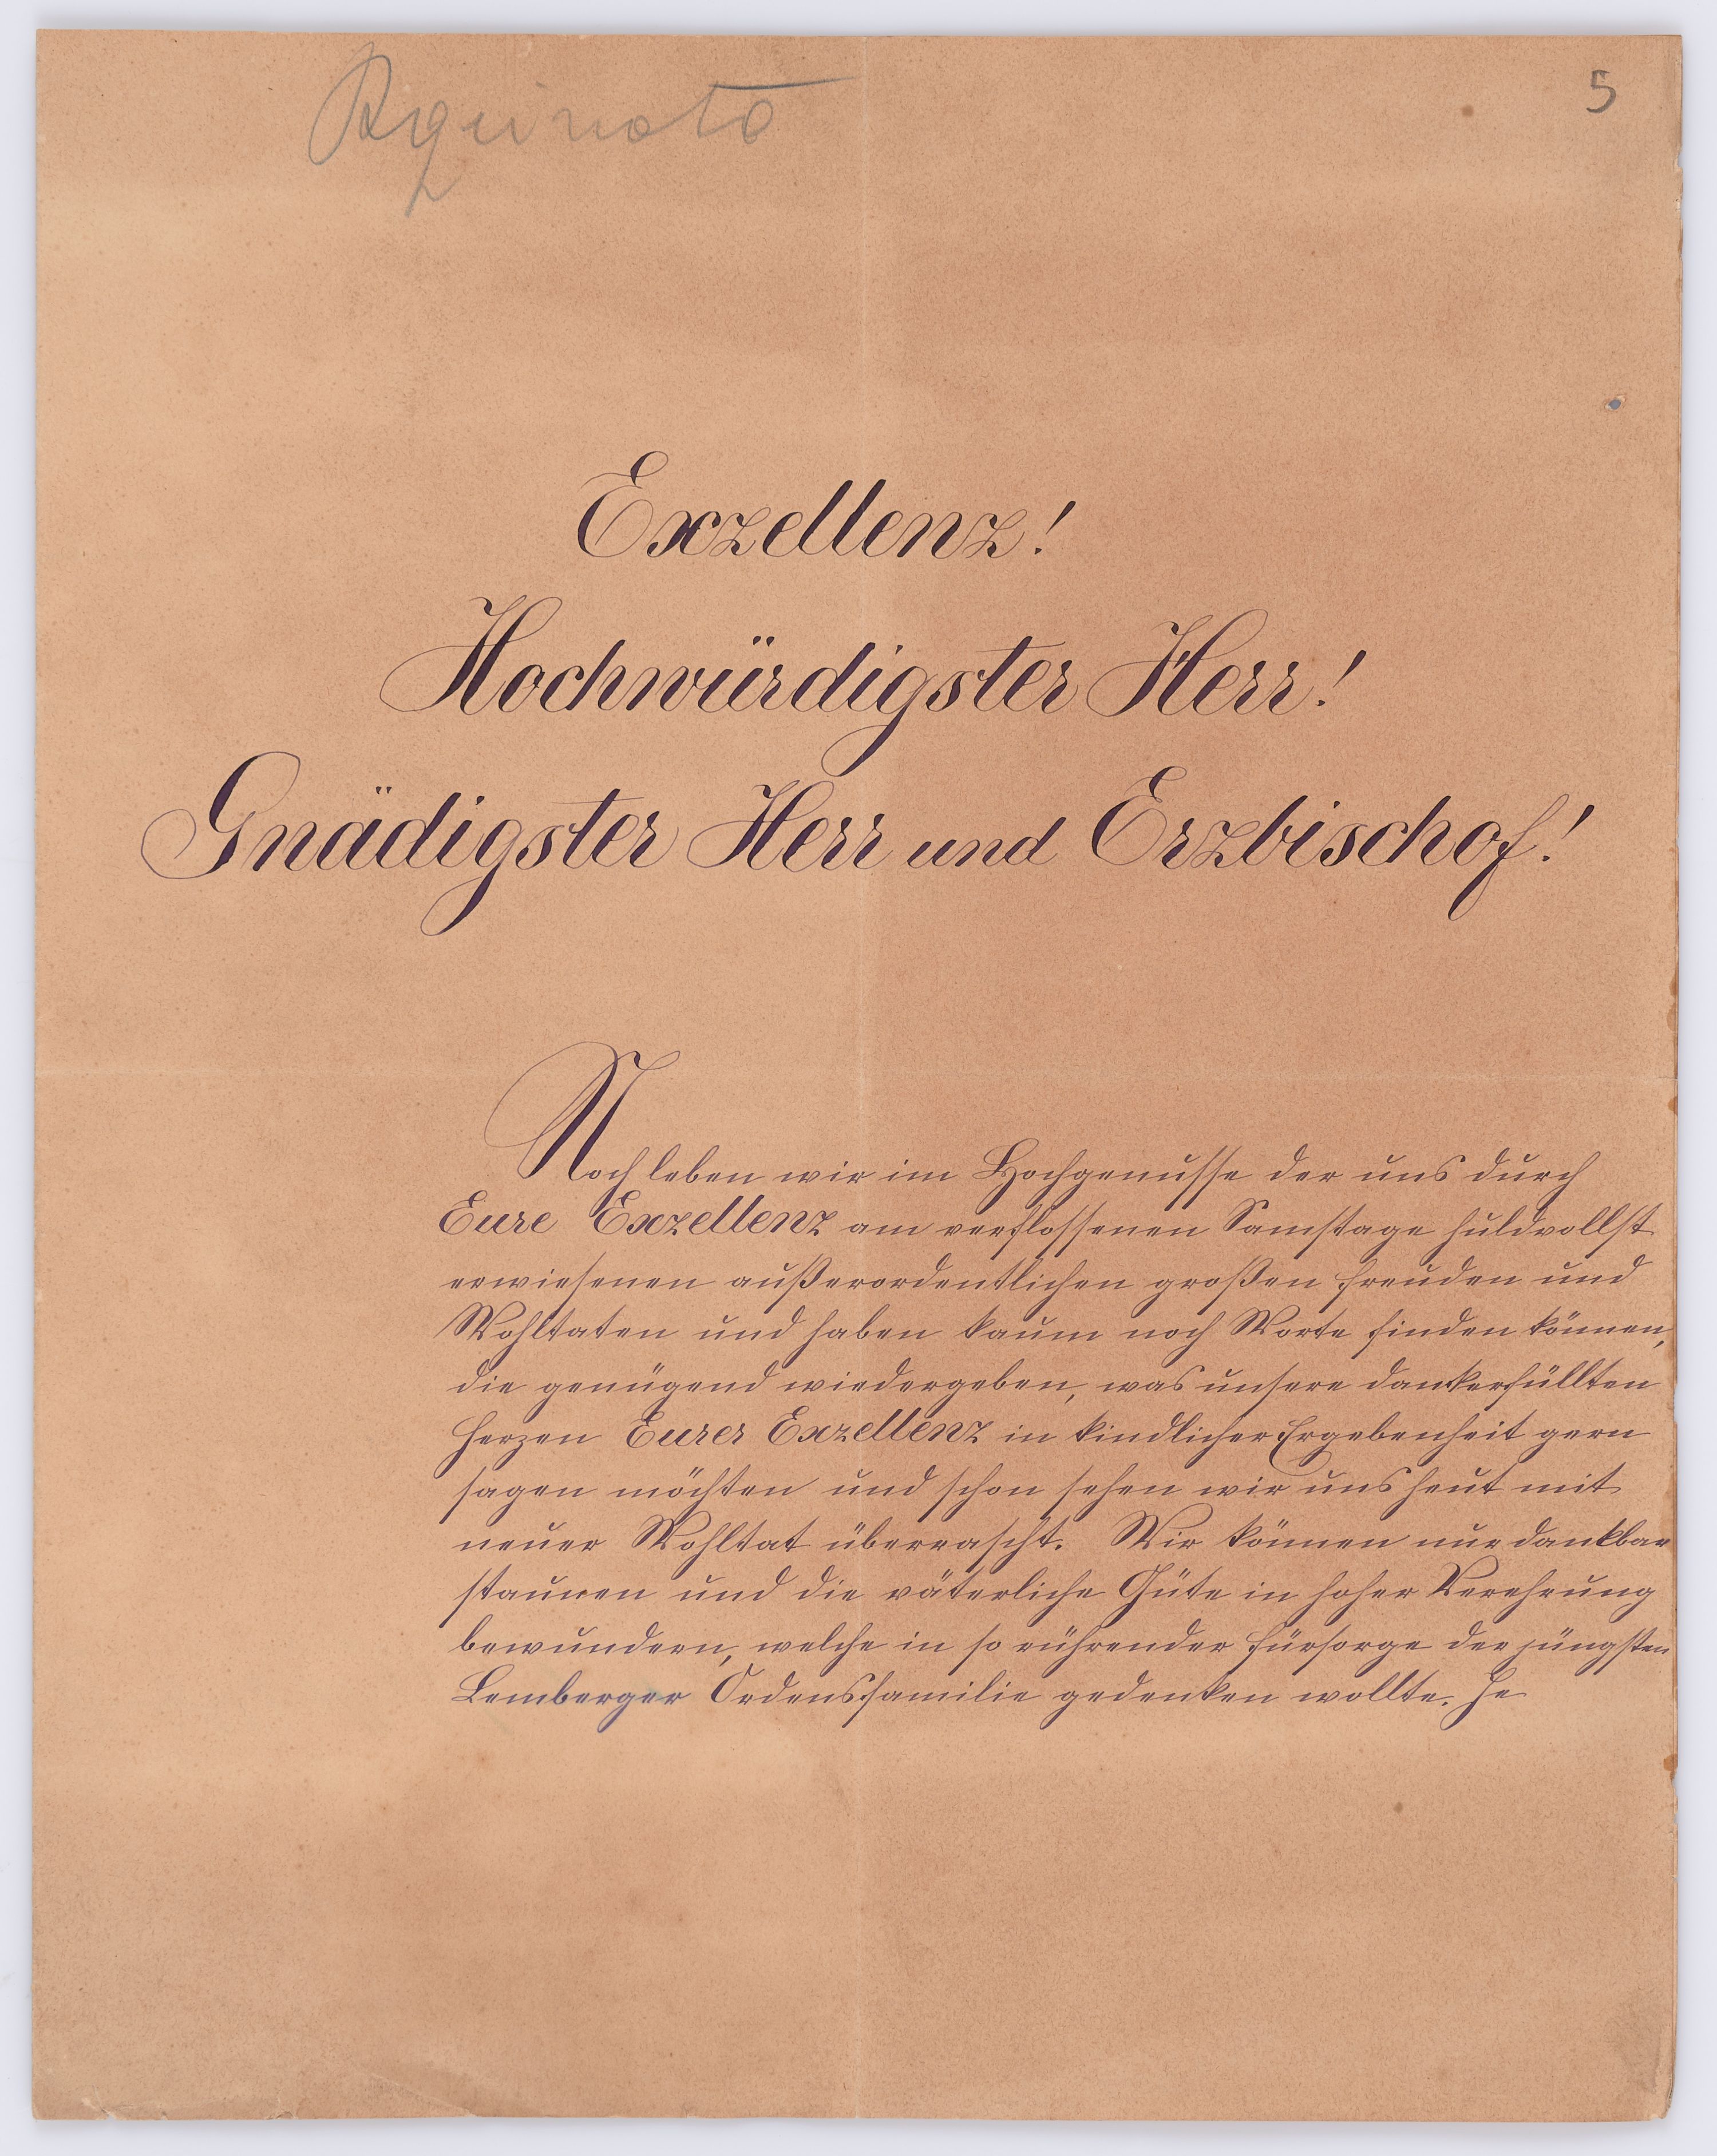 5
Exzellenz!
Hochwürdigster Herr!
Gnädigster Herr und Erzbischof!
Noch leben wir im Hochgenusse der uns durch
Eure Exzellenz am verflossenen Samstage huldvollst
erwiesenen außerordentlichen großen Freuden und
Wohltaten und haben kaum noch Worte finden können,
die genügend wiedergeben, was unsere dankerfüllten
Herzen Eurer Exzellenz in kindlicher Ergebenheit gern
sagen möchten und schon sehen wir uns heut mit
neuer Wohltat überrascht. Wir können nur dankbar
staunen und die väterliche Güte in hoher Verehrung
bewundern, welche in so rührender Fürsorge der jüngsten
Lemberger Ordensfamilie gedenken wollte. Je